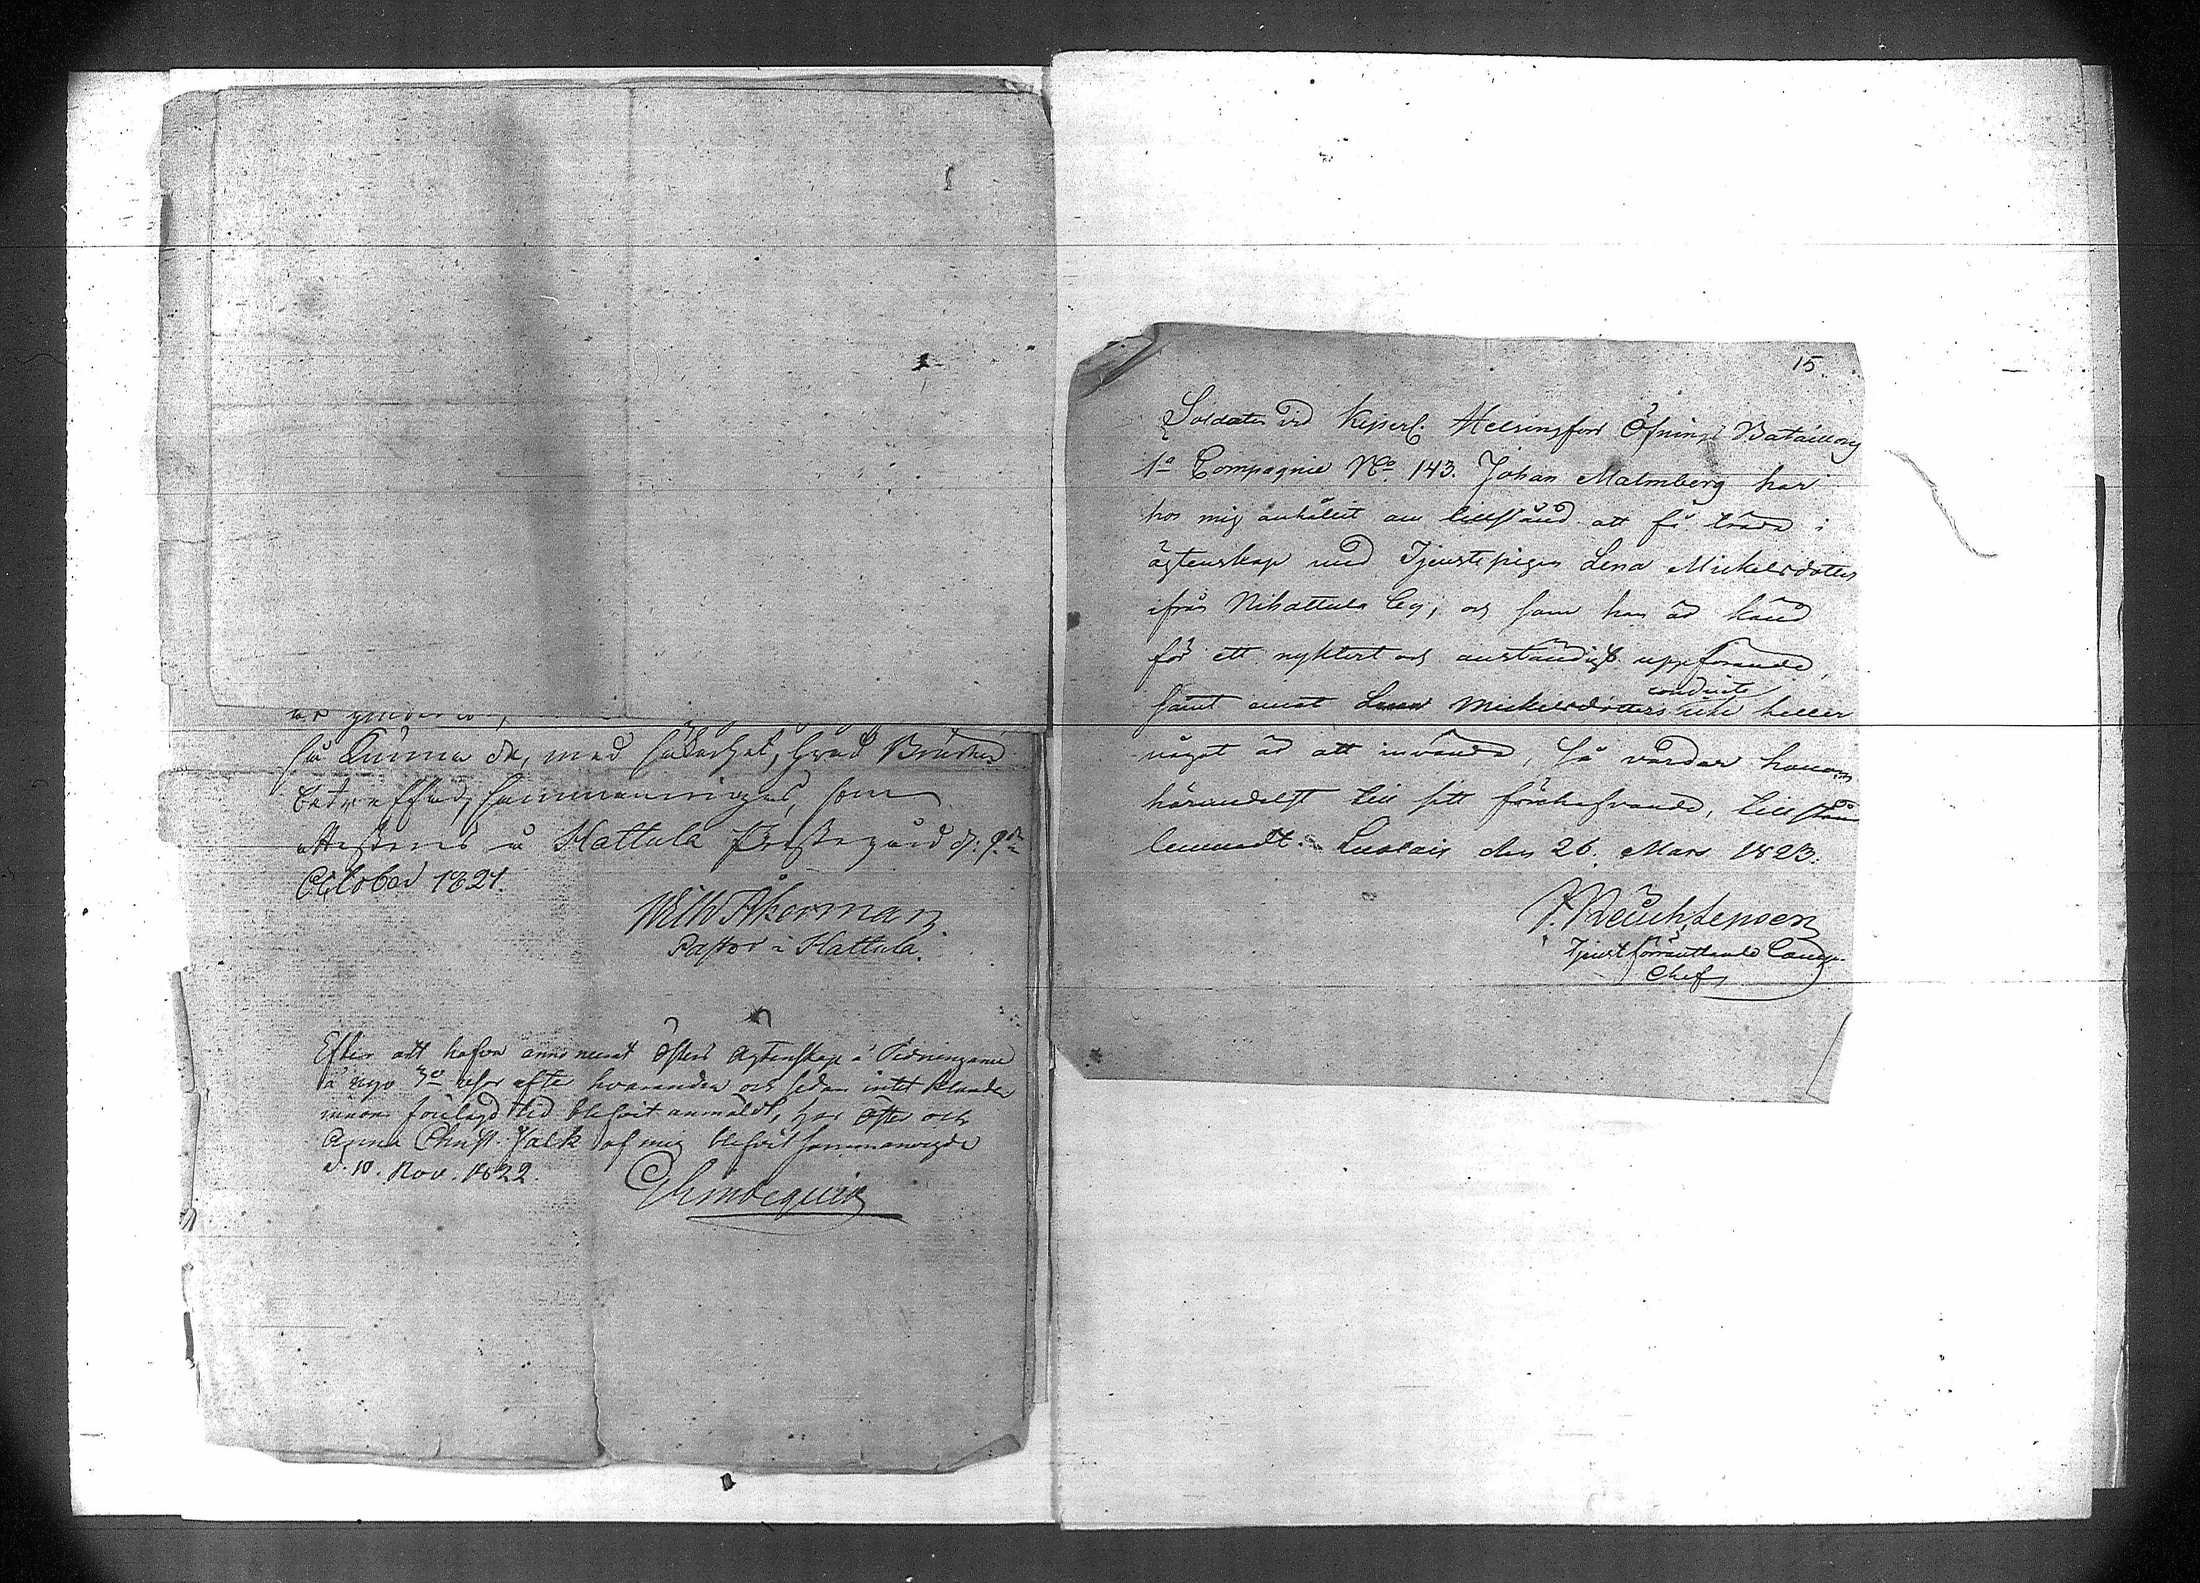 så kunna de, med säkerhet, hvad Bruden
beträffad, sammanvigas, som
attesteras å Hattula Prestegård d: 9de
October 1821.
Wilh Åkerman
Pastor i Hattula.
Efter att hafva annoncerat Östers Ägtenskap i Tidningarne
å nyo 3e resor efter hvarandra och sedan intet klander
inom förelagd tid blifvit anmäldt, har Öster och
Anna Christ. Falk af mig blifvit sammanvigde
d. 10. Nov. 1822.
15.
Soldaten vid Kejserl. Helsingfors Öfnings Bataillon
1a Compagnie No. 143. Johan Malmberg har
hos mig anhållit om tillstånd att få träda i
ägtenskap med Tjenstepigan Lena Mickelsdotter
ifrån Nihattula by, och som han är känd
för ett nyktert och anständigt uppförande,
samt emot Lenas Mickelsdotters conduite icke heller
något är att invända, så varder honom
härmedelst till sitt förehafvande, tillstånd
lemnadt. den 26. Mars 1823.
Tjenstförrättande Comp.
Chef